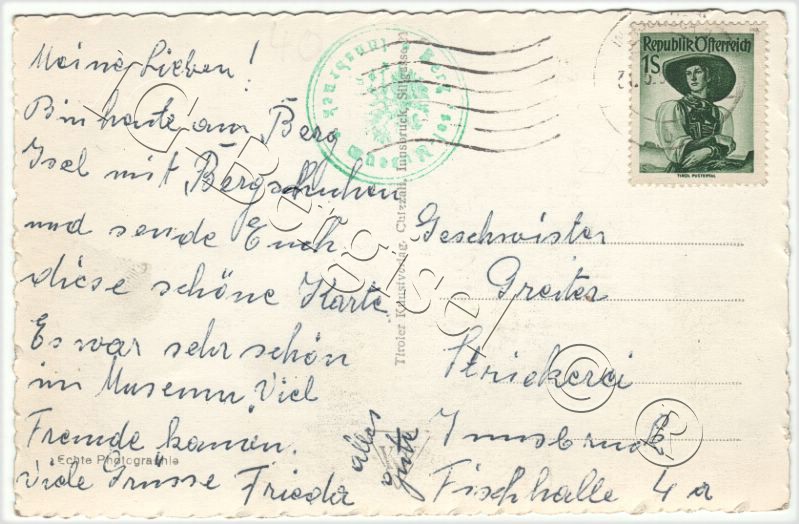 Meine Lieben!
Bin heute am Berg
Isel mit Bergschuhen
und sende Euch
diese schöne Karte
Es war sehr schön
im Museum Viel
Fremde kamen.
Viele Grüsse Frieda
alles
gute
Echte Photographie
Tiroler Kunstverlag, Chizzali, Innsbruck, Sillgasse
Berg Isel
Museum
Innsbruck
Republik Österreich
1S
TIROL PUSTERTAL
Geschwister
Greiter
Strickerei
Innsbruck
Fischhalle 4 a
40
©
R